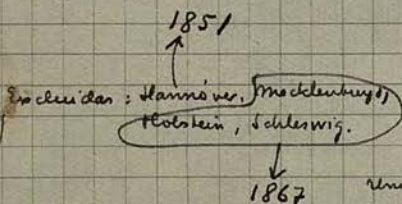 1851
Excluidas : Hannóver, Mecklenburgo,
Holstein, Schleswig.
1867